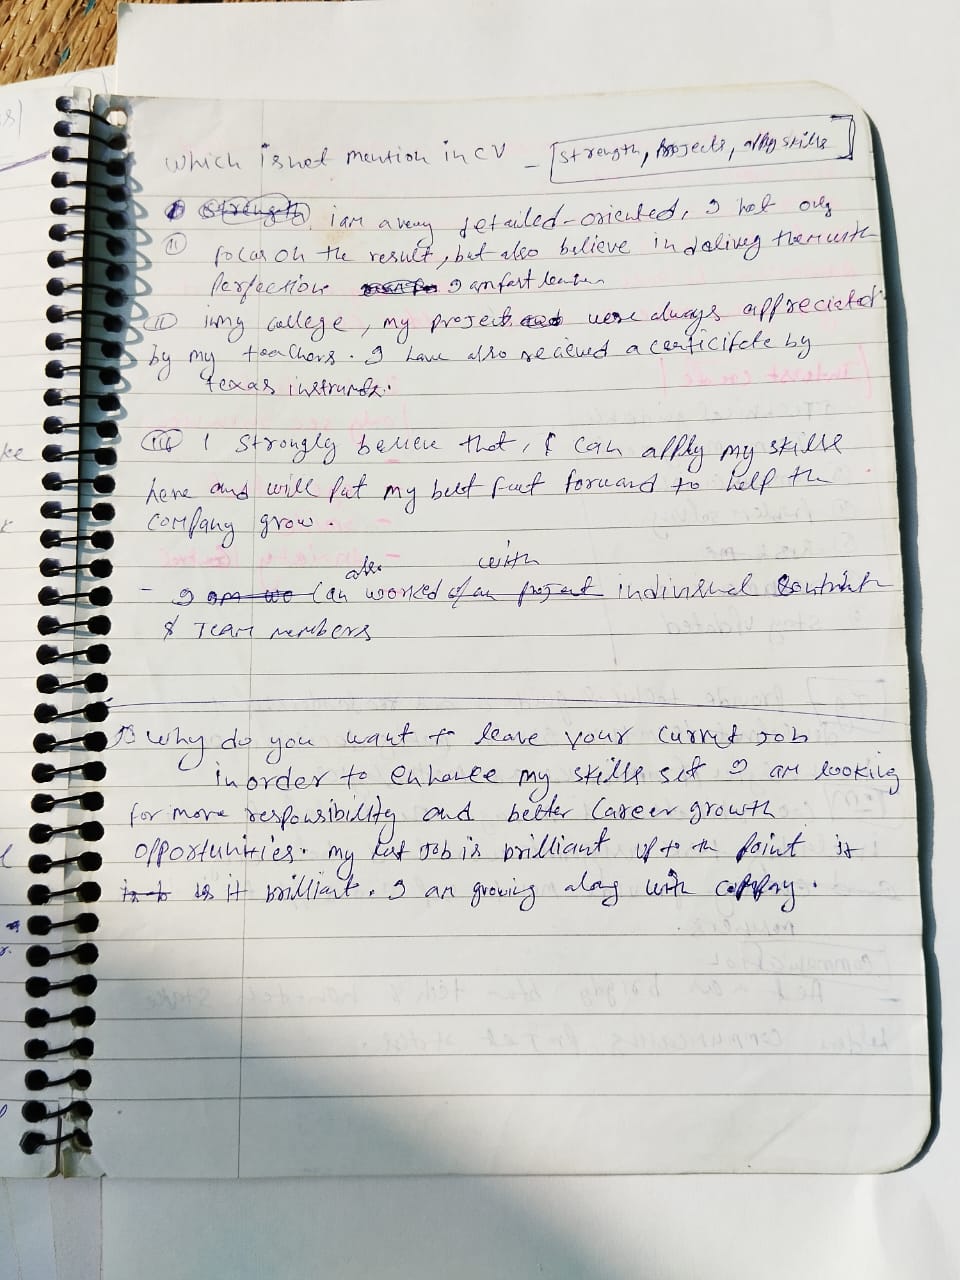 which is not mention in CV - [strength, projects, apply skills]
strength i am a very detailed-oriented, I not only
(ii) focus on the result, but also believe in delivery them with
perfection I am fast learner
(ii) in my college, my project were always appreciated
by my teachers. I have also recieved a certificate by
texas instruments.
(iii) I strongly believe that, I can apply my skills
here and will put my best foot forward to help the
company grow.
also with
- I am wo can worked of an project individual
& Team members
Why do you want to leave your current job
in order to enhance my skills set I am looking
for more responsibility and better Career growth
opportunities. my last Job is brilliant up to the point it
is it brilliant. I am growing along with company.